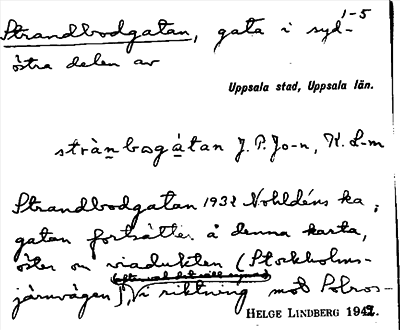 1-5
Strandbodgatan, gata i syd-
östra delen av
Uppsala stad, Uppsala län.
strànbogátan J. P. Jo-n, K. L-m
Strandbodgatan 1932 Nohldéns ka;
gatan fortsätter å denna karta,
öster om viadukten (Stockholms-
järnvägen), i riktning mot Polros-
HELGE LINDBERG 1942.